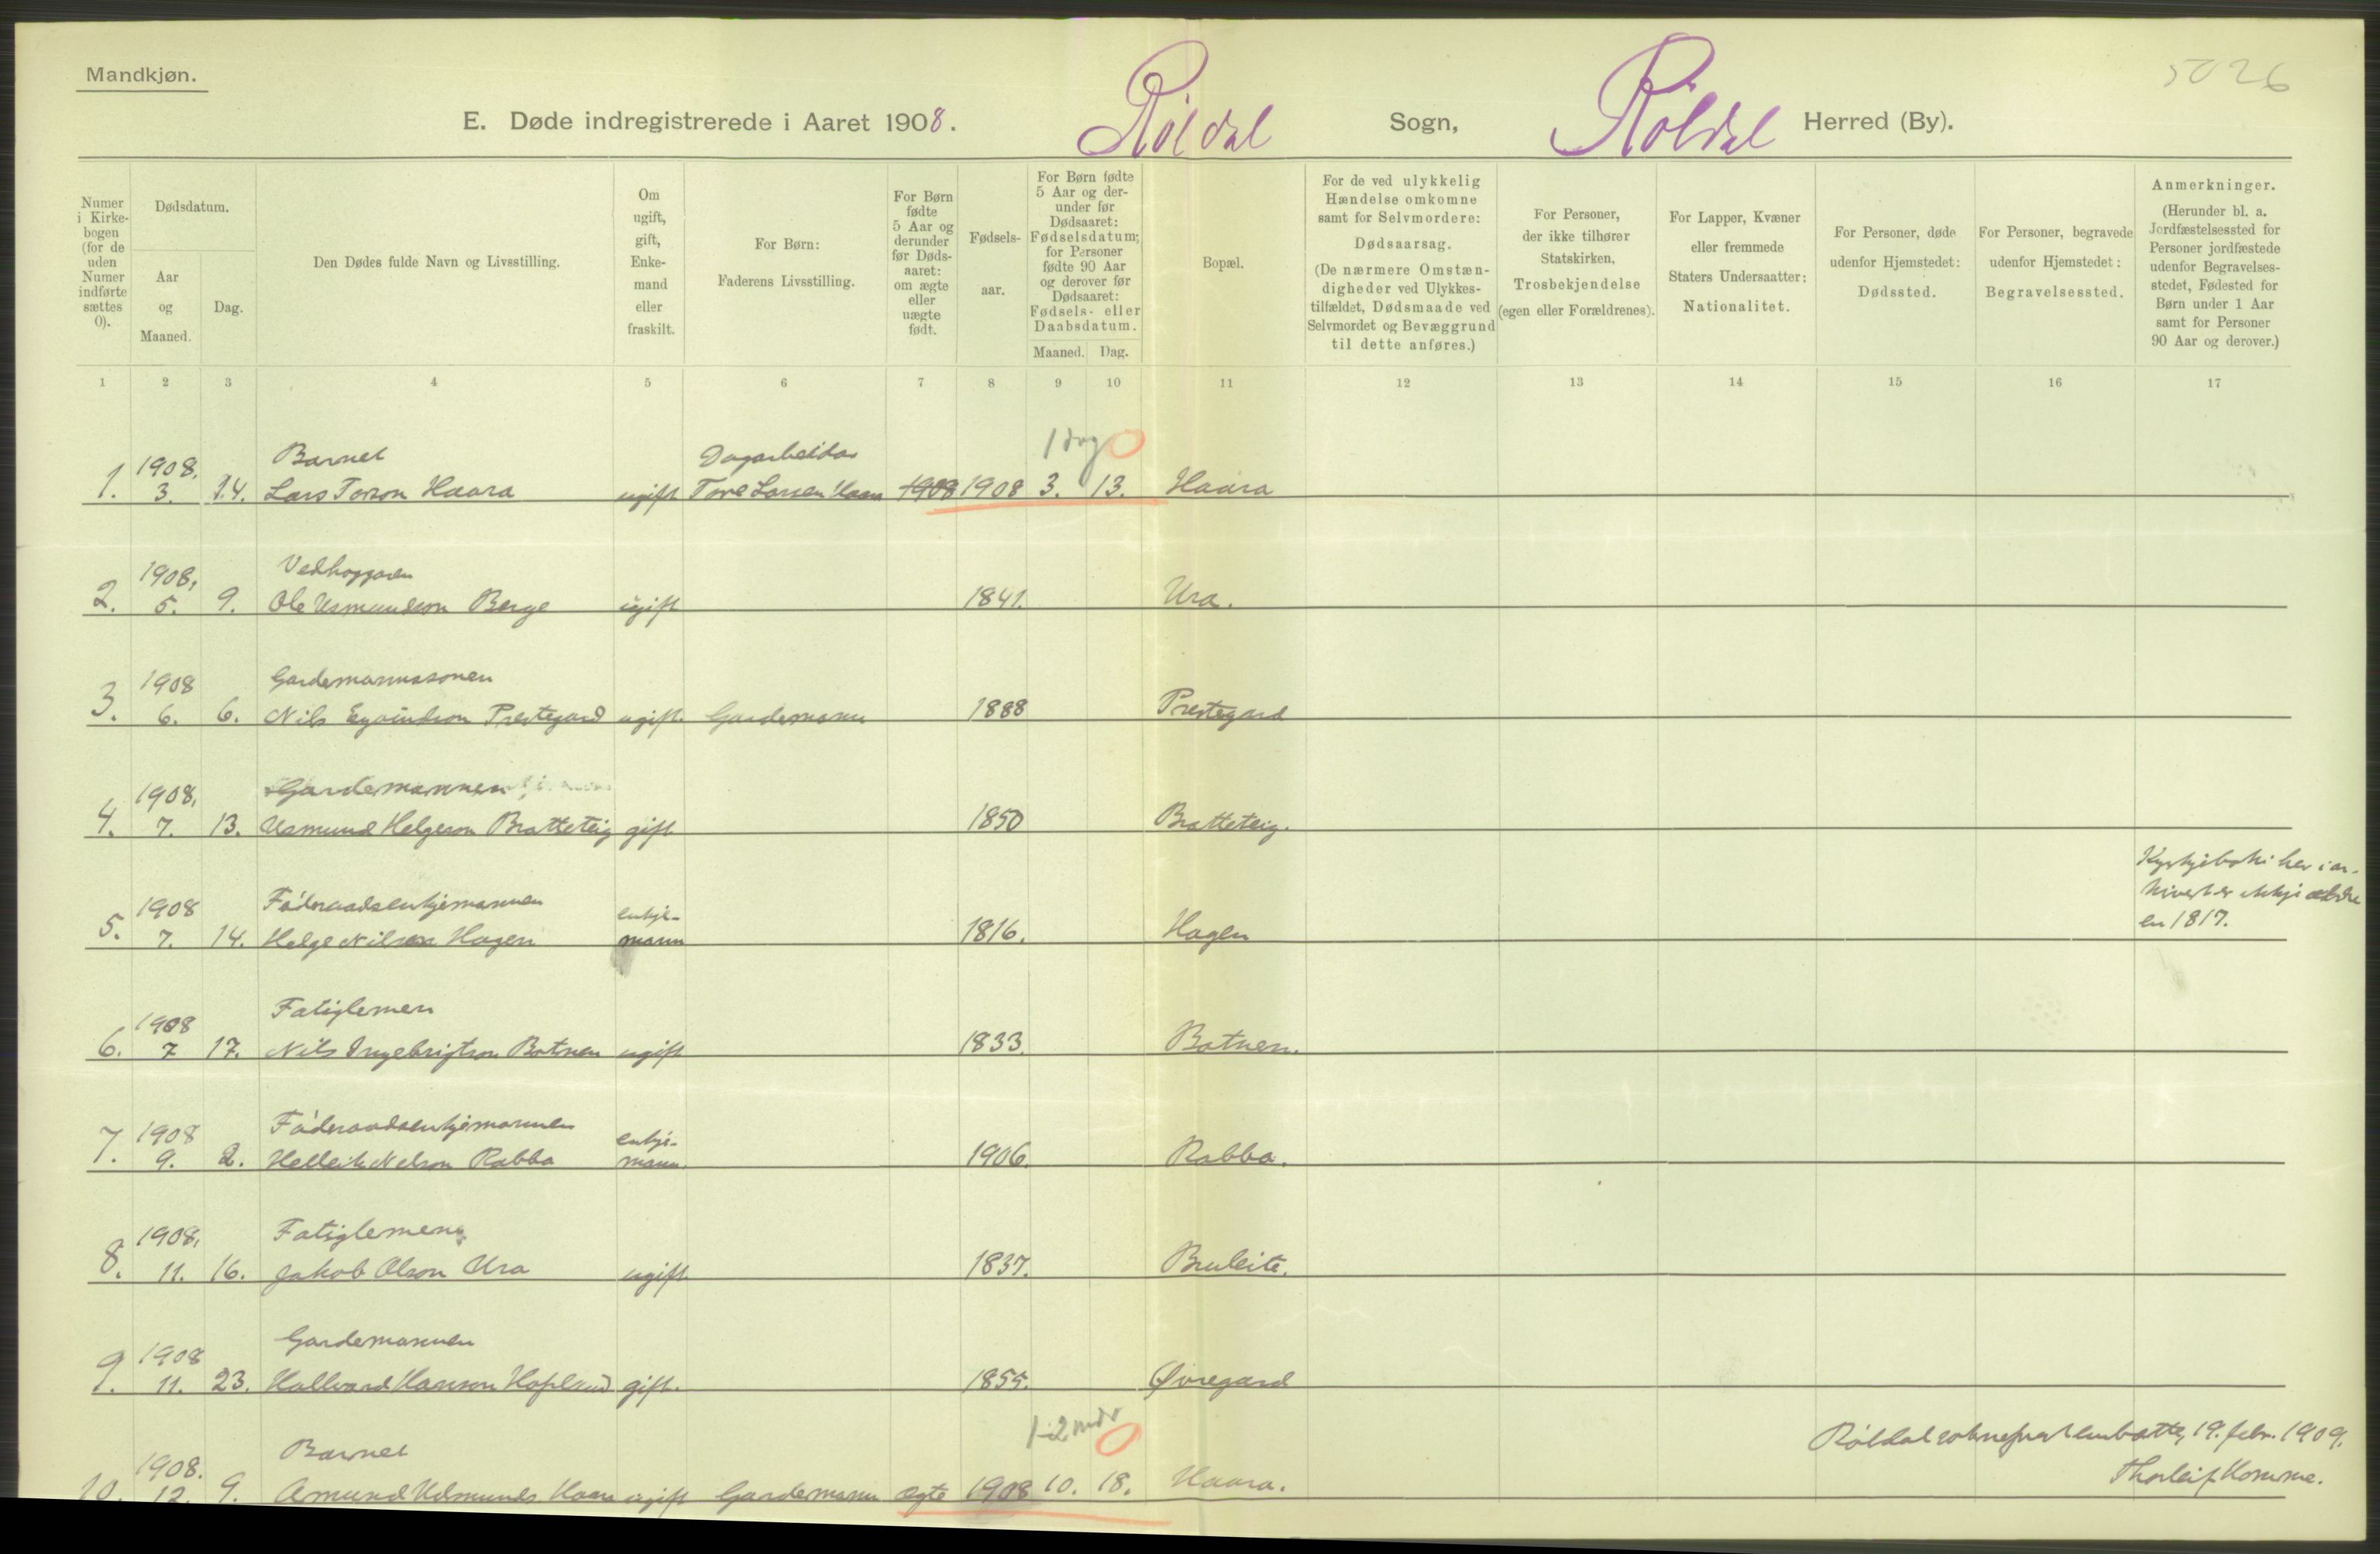 Mandkjøn.
5026
E. Døde indregistrerede i Aaret 1908. Röldal Sogn, Röldal Herred (By).
Numer i Kirkebogen (for de uden Numer indførte sættes 0).
Dødsdatum.
Aar og Maaned.
Dag.
Den Dødes fulde Navn og Livsstilling.
Om ugift, gift, Enkemand eller fraskilt.
For Børn: Faderens Livsstilling.
For Børn fødte 5 Aar og derunder før Dødsaaret: om ægte eller uægte født.
Fødselsaar.
For Børn fødte 5 Aar og derunder før Dødsaaret: Fødselsdatum; for Personer fødte 90 Aar og derover før Dødsaaret: Fødsels- eller Daabsdatum.
Maaned. Dag.
Bopæl.
For de ved ulykkelig Hændelse omkomne samt for Selvmordere: Dødsaarsag. (De nærmere Omstændigheder ved Ulykkestilfældet, Dødsmaade ved Selvmordet og Bevæggrund til dette anføres.)
For Personer, der ikke tilhører Statskirken, Trosbekjendelse (egen eller Forældrenes).
For Lapper, Kvæner eller fremmede Staters Undersaatter: Nationalitet.
For Personer, døde udenfor Hjemstedet: Dødssted.
For Personer, begravede udenfor Hjemstedet: Begravelsessted.
Anmerkninger. (Herunder bl. a. Jordfæstelsessted for Personer jordfæstede udenfor Begravelsesstedet, Fødested for Børn under 1 Aar samt for Personer 90 Aar og derover.)
1 2 3 4 5 6 7 8 9 10 11 12 13 14 15 16 17
1908. Barnet Dagarbeidar 1 dag 0
1. 3. 14. Lars Torson Haara ugift Tore Larsen Haara 1908 1908 3. 13. Haara
1908, Vedhoggaren
2. 5. 9. Ole Asmundson Berge ugift 1841. Ura.
1908 Gardemannssonen
3. 6. 6. Nils Eyvindson Prestegard ugift. Gardemann 1888 Prestegard
1908, Gardemannen
4. 7. 13. Asmund Helgeson Bratteteig gift 1850 Bratteteig.
1908 Föderaadsenkjemannen enkje- Kyrkjeboki her i ar-
kivet er ikkje ældre
5. 7. 14. Helge Nilson Hagen mann 1816. Hagen en 1817.
1908 Fatiglemen
6. 7 17. Nils Ingebrigtson Botnen ugift 1833. Botnen.
1908 Föderaadsenkjemannen enkje-
7. 9. 2. Helleik Nelson Rabba mann. 1906. Rabba.
1908, Fatiglemen
8. 11. 16. Jakob Olson Ura ugift 1837. Bruleite.
1908 Gardemannen
9. 11. 23. Hallvard Hanson Hopland gift. 1855. Øvregard
1-2 mdr 0
1908. Barnet Röldal sokneprestembætte, 19. febr. 1909.
10. 12. 9. Amund Asmunds Haara ugift Gardemann ægte 1908 10. 18. Haara. Thorleif Homme.